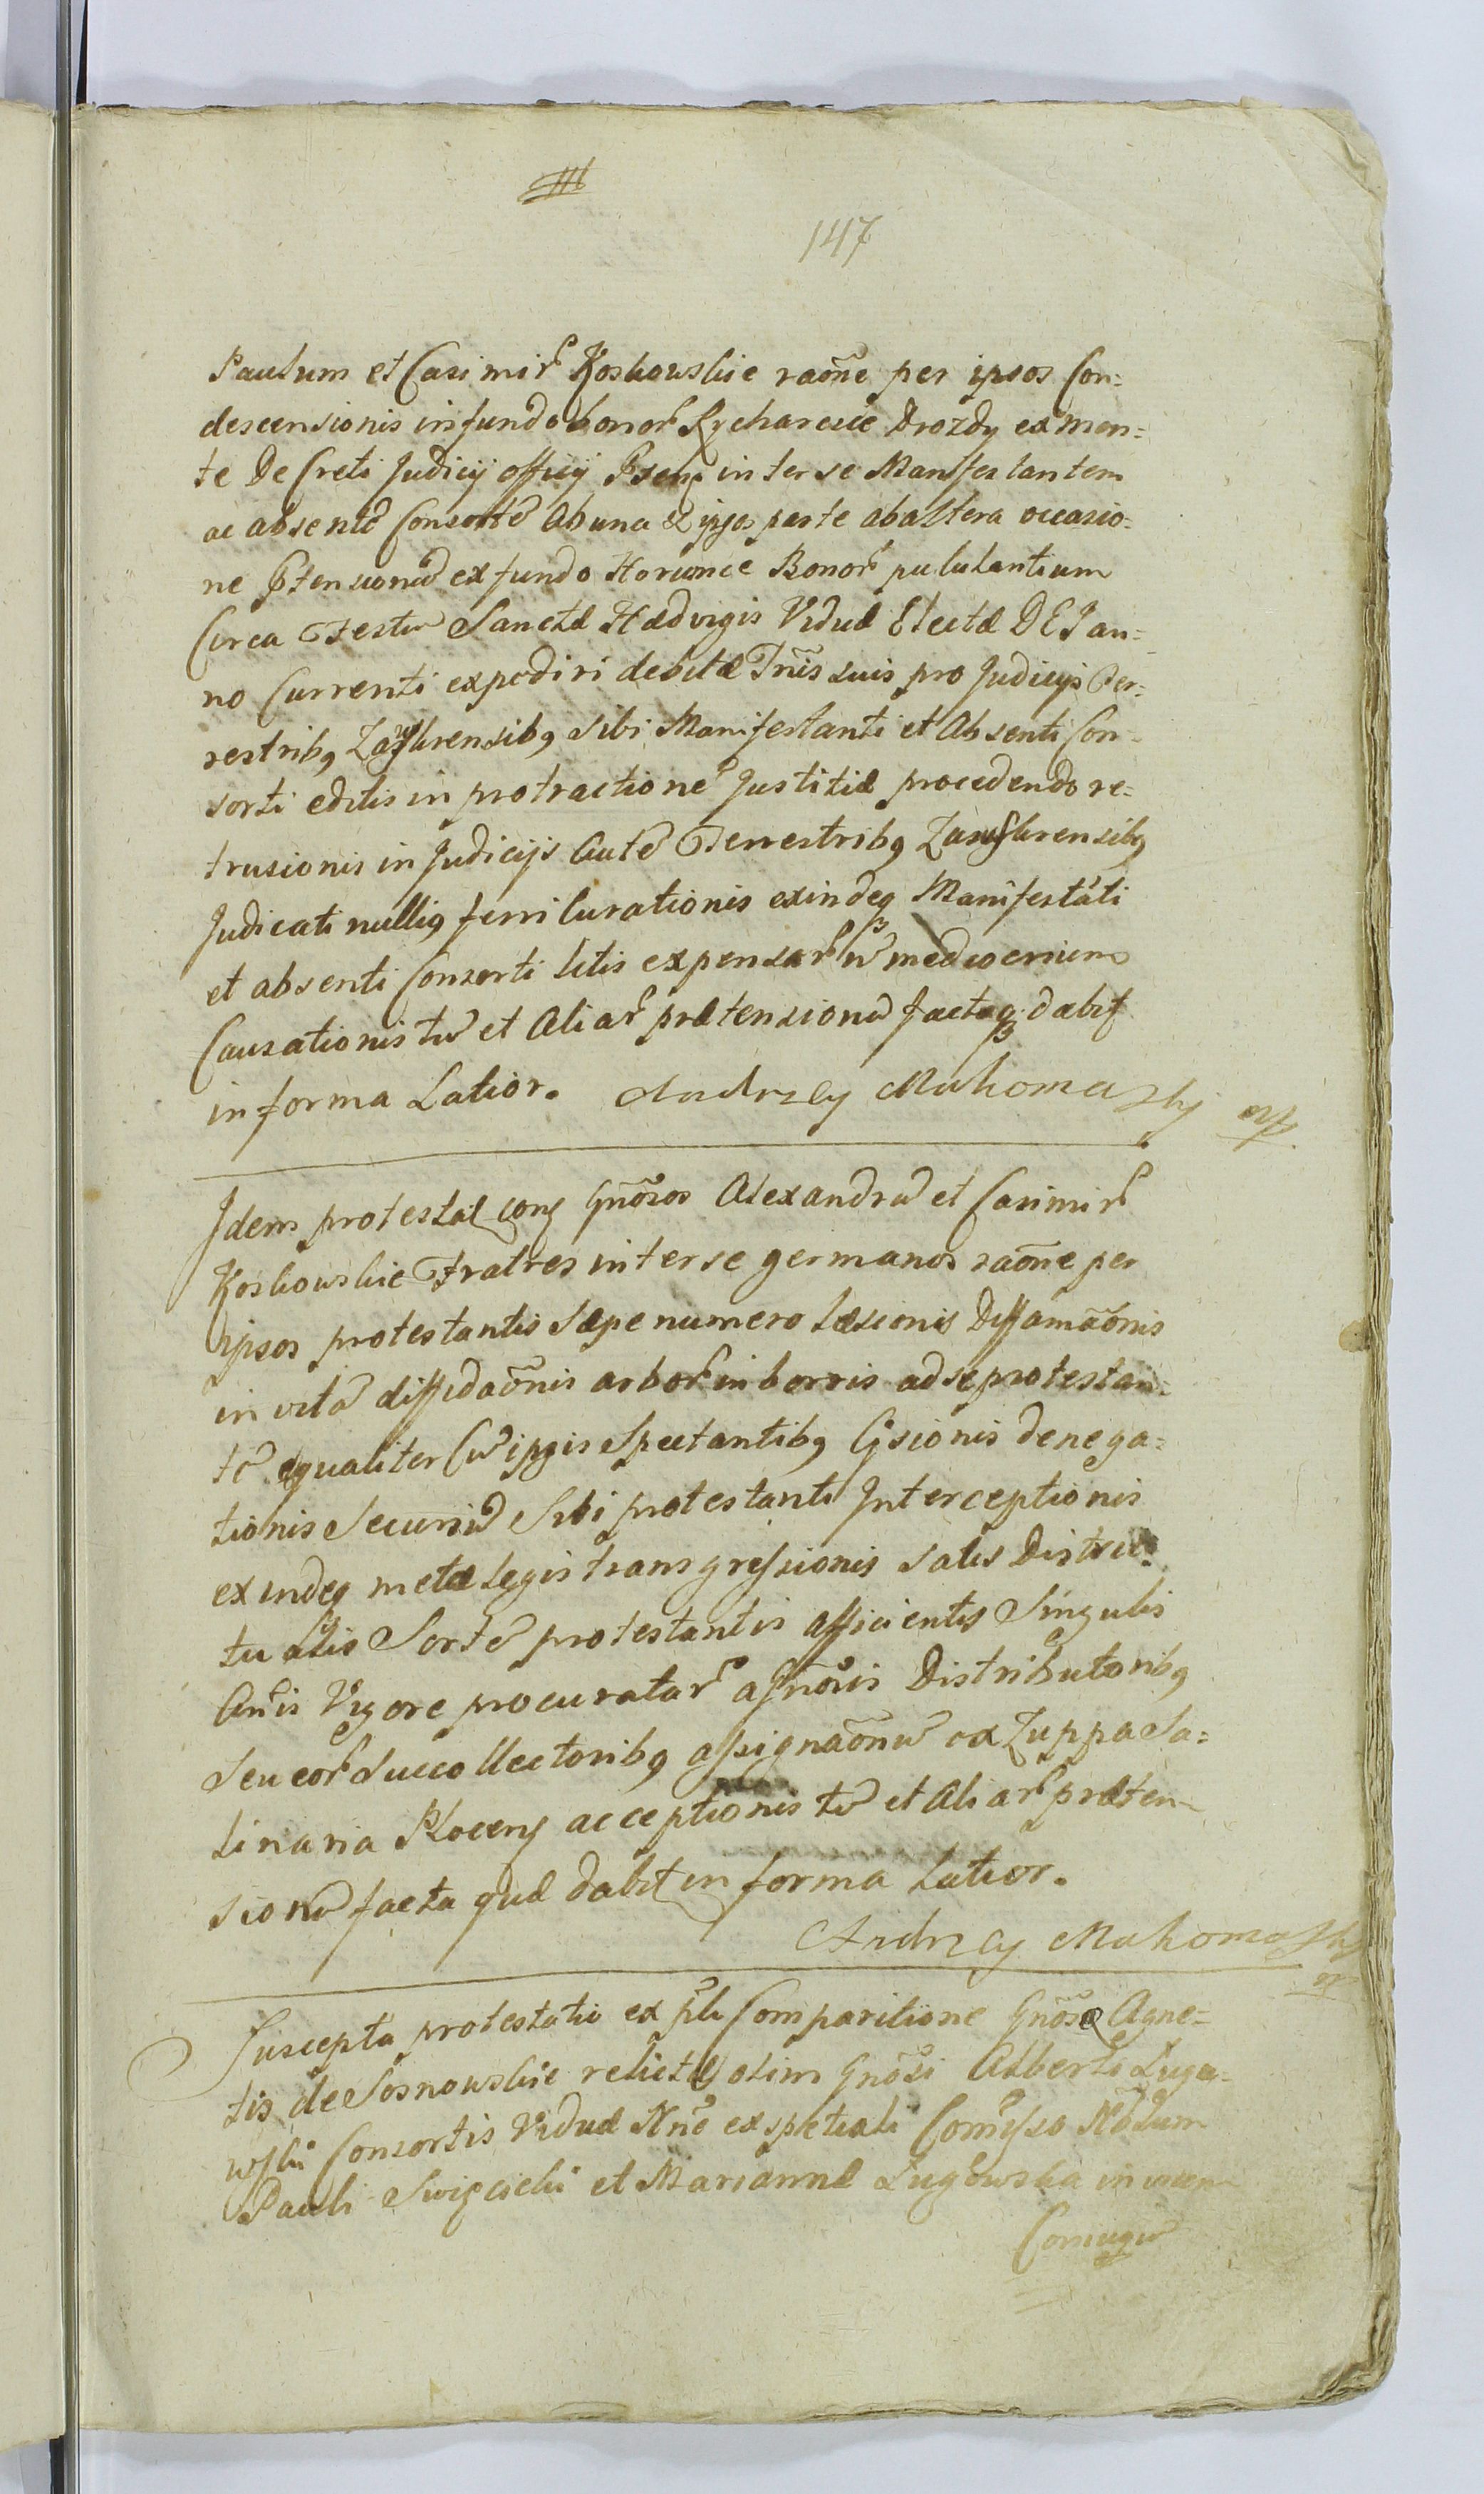 147
Paulum et Casimir̃ Koskowskie raõne per ipsos Con=
descensionis in fundo bonor̃ Rycharcice Drozdy ex men=
te De Creti Judicij officij Pñsen inter se Manifestantem
ac absentẽ Consortẽ Ab una & ipsos parte ab altera occasio=
ne Ptensionũ ex fundo Horunce Bonor̃ pululantium
Circa Festũ Sanctæ Hædvigis Viduæ Electæ DEI an=
no Currenti expediri debitæ Tñis suis pro Judicijs Ter=
restribq Zawskrensibq Sibi Manifestanti et Absenti Con=
sorti editis in protractionẽ Justitiæ procedendo re=
trusionis in Judicijs Autẽ Terrestribq Zawskrensibq
Judicati nulliq ferri Curationis exindeq Manifestãti
et absenti Consorti litis expensar̃ ñ mediocrium
Causationis tũ et Aliar̃ prætensionũ factaq dabit
in forma Latior. Andrzey Mahomaski mp
Idem protestat cont Gnõsos Alexandrũ et Casimir̃
Koskowskie Fratres inter se germanos raõne per
ipsos protestantis Sæpe numero læsionis Diffamaõnis
in vitã diffidaõnis arbor̃ in borris ad se protestan=
tẽ equaliter Cũ ipsis Spectantibq Cisionis denega=
tionis Securiũ Sibi protestanti Interceptionis
exindeq metæ legis transgressionis Salis Distric=
tualis Sortẽ protestantis afficientis Singulis
Añis Vigore procuratar̃ a Gnõsis Distributoribq
Seu eor̃ Succollectoribq assignaõnũ ex Zuppa Sa=
linaria Plocen acceptionis tũ et Aliar̃ præten=
sionũ facta quæ dabit in forma Latior.
Andrzey Mahomaski
mp
Suscepta protestatio ex pñli Comparitione Gnõsæ Agne=
tis de Sosnowskie relictæ olim Gnõsi Alberti Ługo=
wski Consortis Viduæ Nñe ex spetiali Comisso Nõbilium
Pauli Swięcicki et Mariannæ Ługowska invicem
Coniugũ